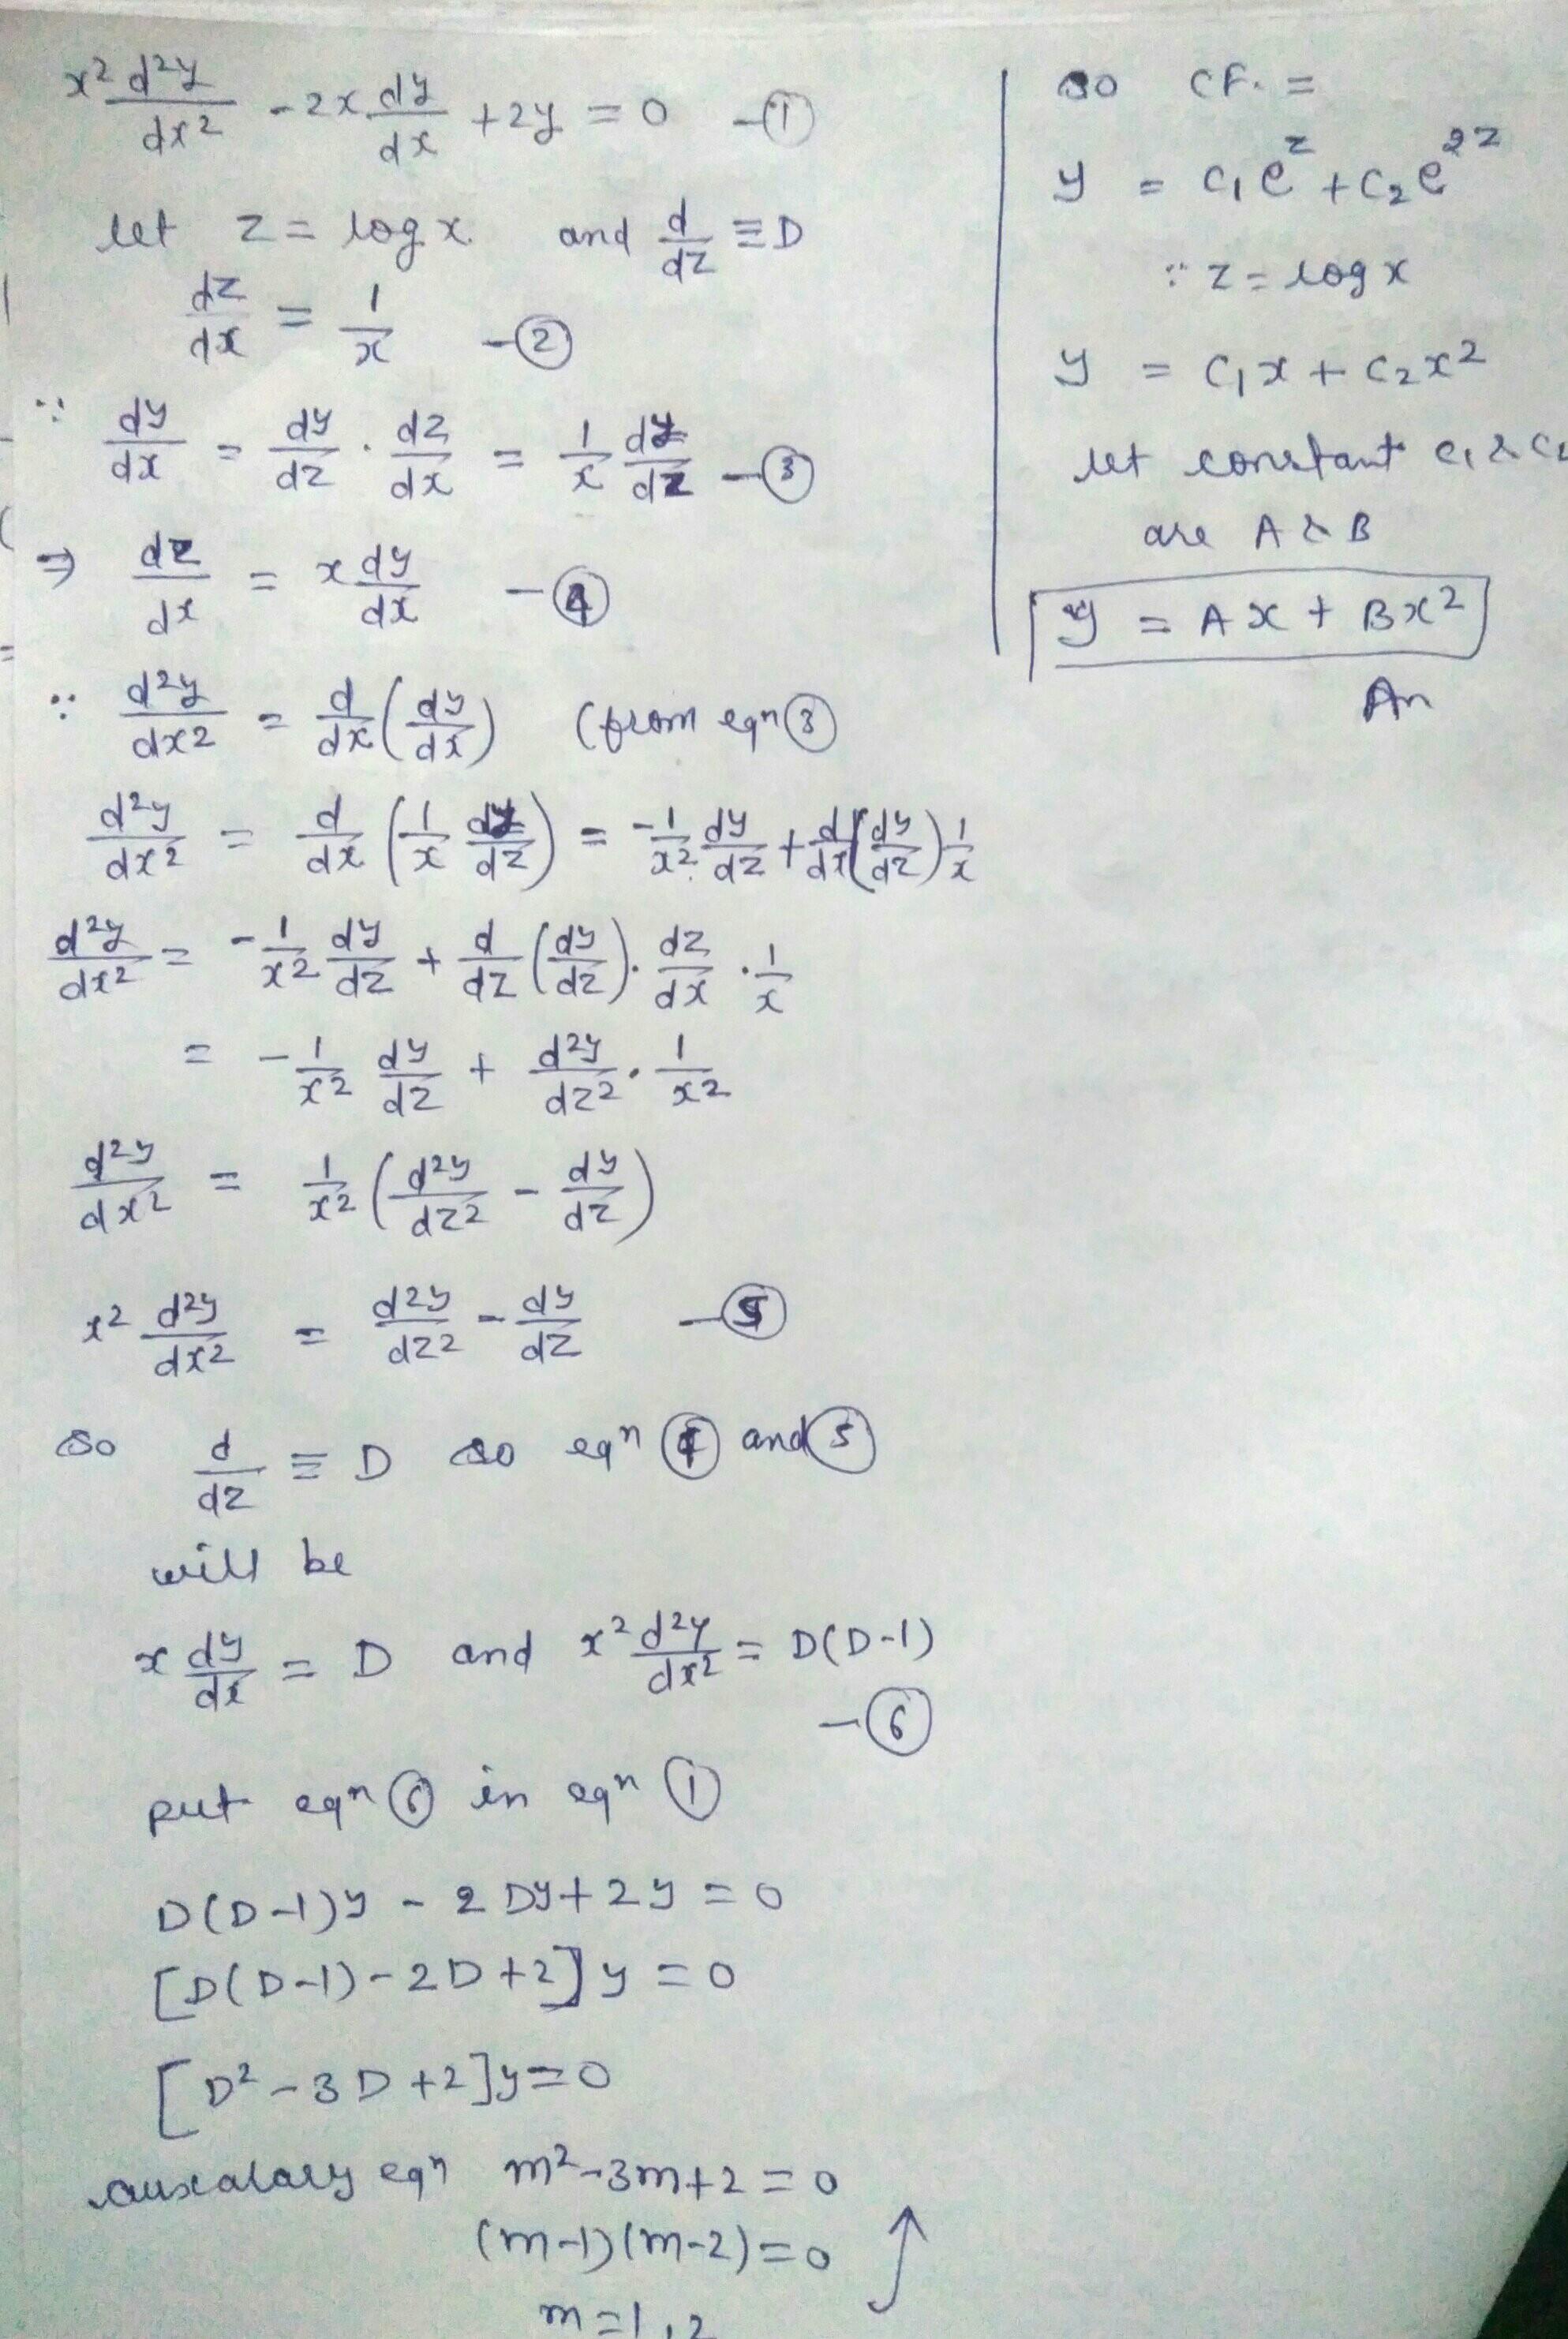 x² d²y/dx² - 2x dy/dx + 2y = 0 -①
let z = log x and d/dz ≡ D
dz/dx = 1/x -②
∵ dy/dx = dy/dz · dz/dx = 1/x dy/dz -③
⇒ dz/dx = x dy/dx -④
∵ d²y/dx² = d/dx (dy/dx) (from eqn ③
d²y/dx² = d/dx (1/x dy/dz) = -1/x² dy/dz + d/dx (dy/dz) 1/x
d²y/dx² = -1/x² dy/dz + d/dz (dy/dz) · dz/dx · 1/x
= -1/x² dy/dz + d²y/dz² · 1/x²
d²y/dx² = 1/x² (d²y/dz² - dy/dz)
x² d²y/dx² = d²y/dz² - dy/dz -⑤
so d/dz ≡ D so eqn ④ and ⑤
will be
x dy/dx = D and x² d²y/dx² = D(D-1)
-⑥
put eqn ⑥ in eqn ①
D(D-1)y - 2Dy + 2y = 0
[D(D-1) - 2D + 2] y = 0
[D² - 3D + 2] y = 0
auxalary eqn m² - 3m + 2 = 0
(m-1)(m-2) = 0 ↑
m = 1, 2
so CF. =
y = c₁e^z + c₂e^2z
∵ z = log x
y = c₁x + c₂x²
let constant c₁ & c₂
are A & B
y = Ax + Bx²
An